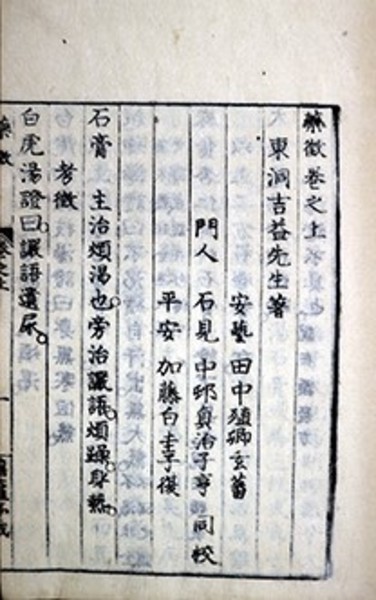 藥徵卷之上
東洞吉益先生著
安藝 田中殖卿玄蕃
門人 石見 中邨貞治子亨 同校
平安 加藤白圭子復
石膏 主治煩渴也。旁治讝語。煩躁。身熱。
考徵
白虎湯證曰讝語遺尿。
藥徵 卷之上 一